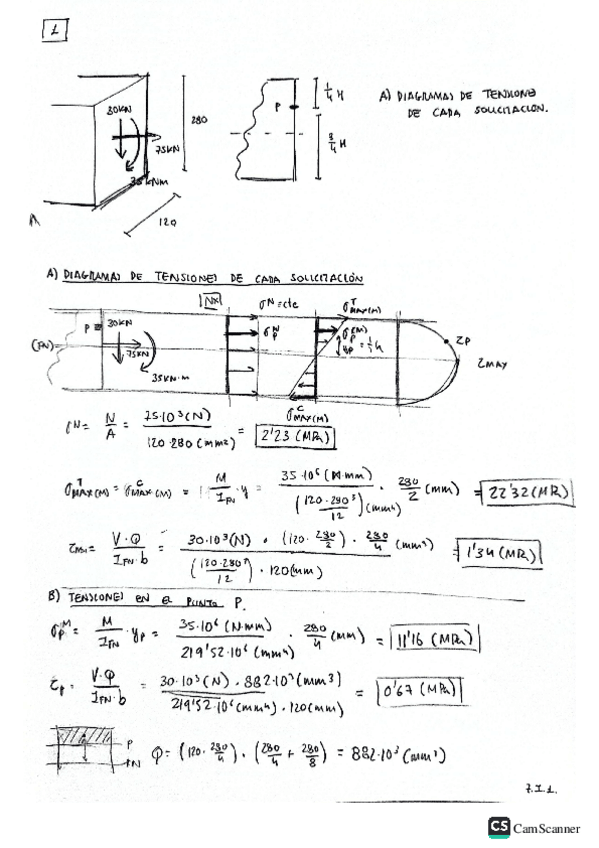 1
30KN
75KN
35 KNm
280
120
P
1/4 H
3/4 H
A) DIAGRAMAS DE TENSIONES
DE CADA SOLICITACIÓN.
A) DIAGRAMAS DE TENSIONES DE CADA SOLICITACIÓN
(FN)
P
30KN
75KN
35KN·m
Nx
σᴺ=cte
σₚᴺ
σᵀMAX(M)
σₚ(M)
yₚ = 1/4 h
σᶜMAX(M)
τP
τMAX
σᴺ = N/A = 75·10³(N) / 120·280 (mm²) = 2'23 (MPa)
σᵀMAX(M) = σᶜMAX(M) = M/I_FN · y = 35·10⁶ (N·mm) / (120·280³/12)(mm⁴) · 280/2 (mm) = 22'32 (MPa)
= V·Q / I_FN·b = 30·10³(N) · (120·280/2)·280/4 (mm³) / (120·280³/12)·120(mm) = 1'34 (MPa)
B) TENSIONES EN EL PUNTO P.
σₚᴹ = M/I_FN · yₚ = 35·10⁶ (N·mm) / 219'52·10⁶ (mm⁴) · 280/4 (mm) = 11'16 (MPa)
τₚ = V·Q / I_FN·b = 30·10³(N)·882·10³(mm³) / 219'52·10⁶(mm⁴)·120(mm) = 0'67 (MPa)
P
FN
Q = (120·280/4)·(280/4 + 280/8) = 882·10³ (mm³)
7.I.1.
CS CamScanner